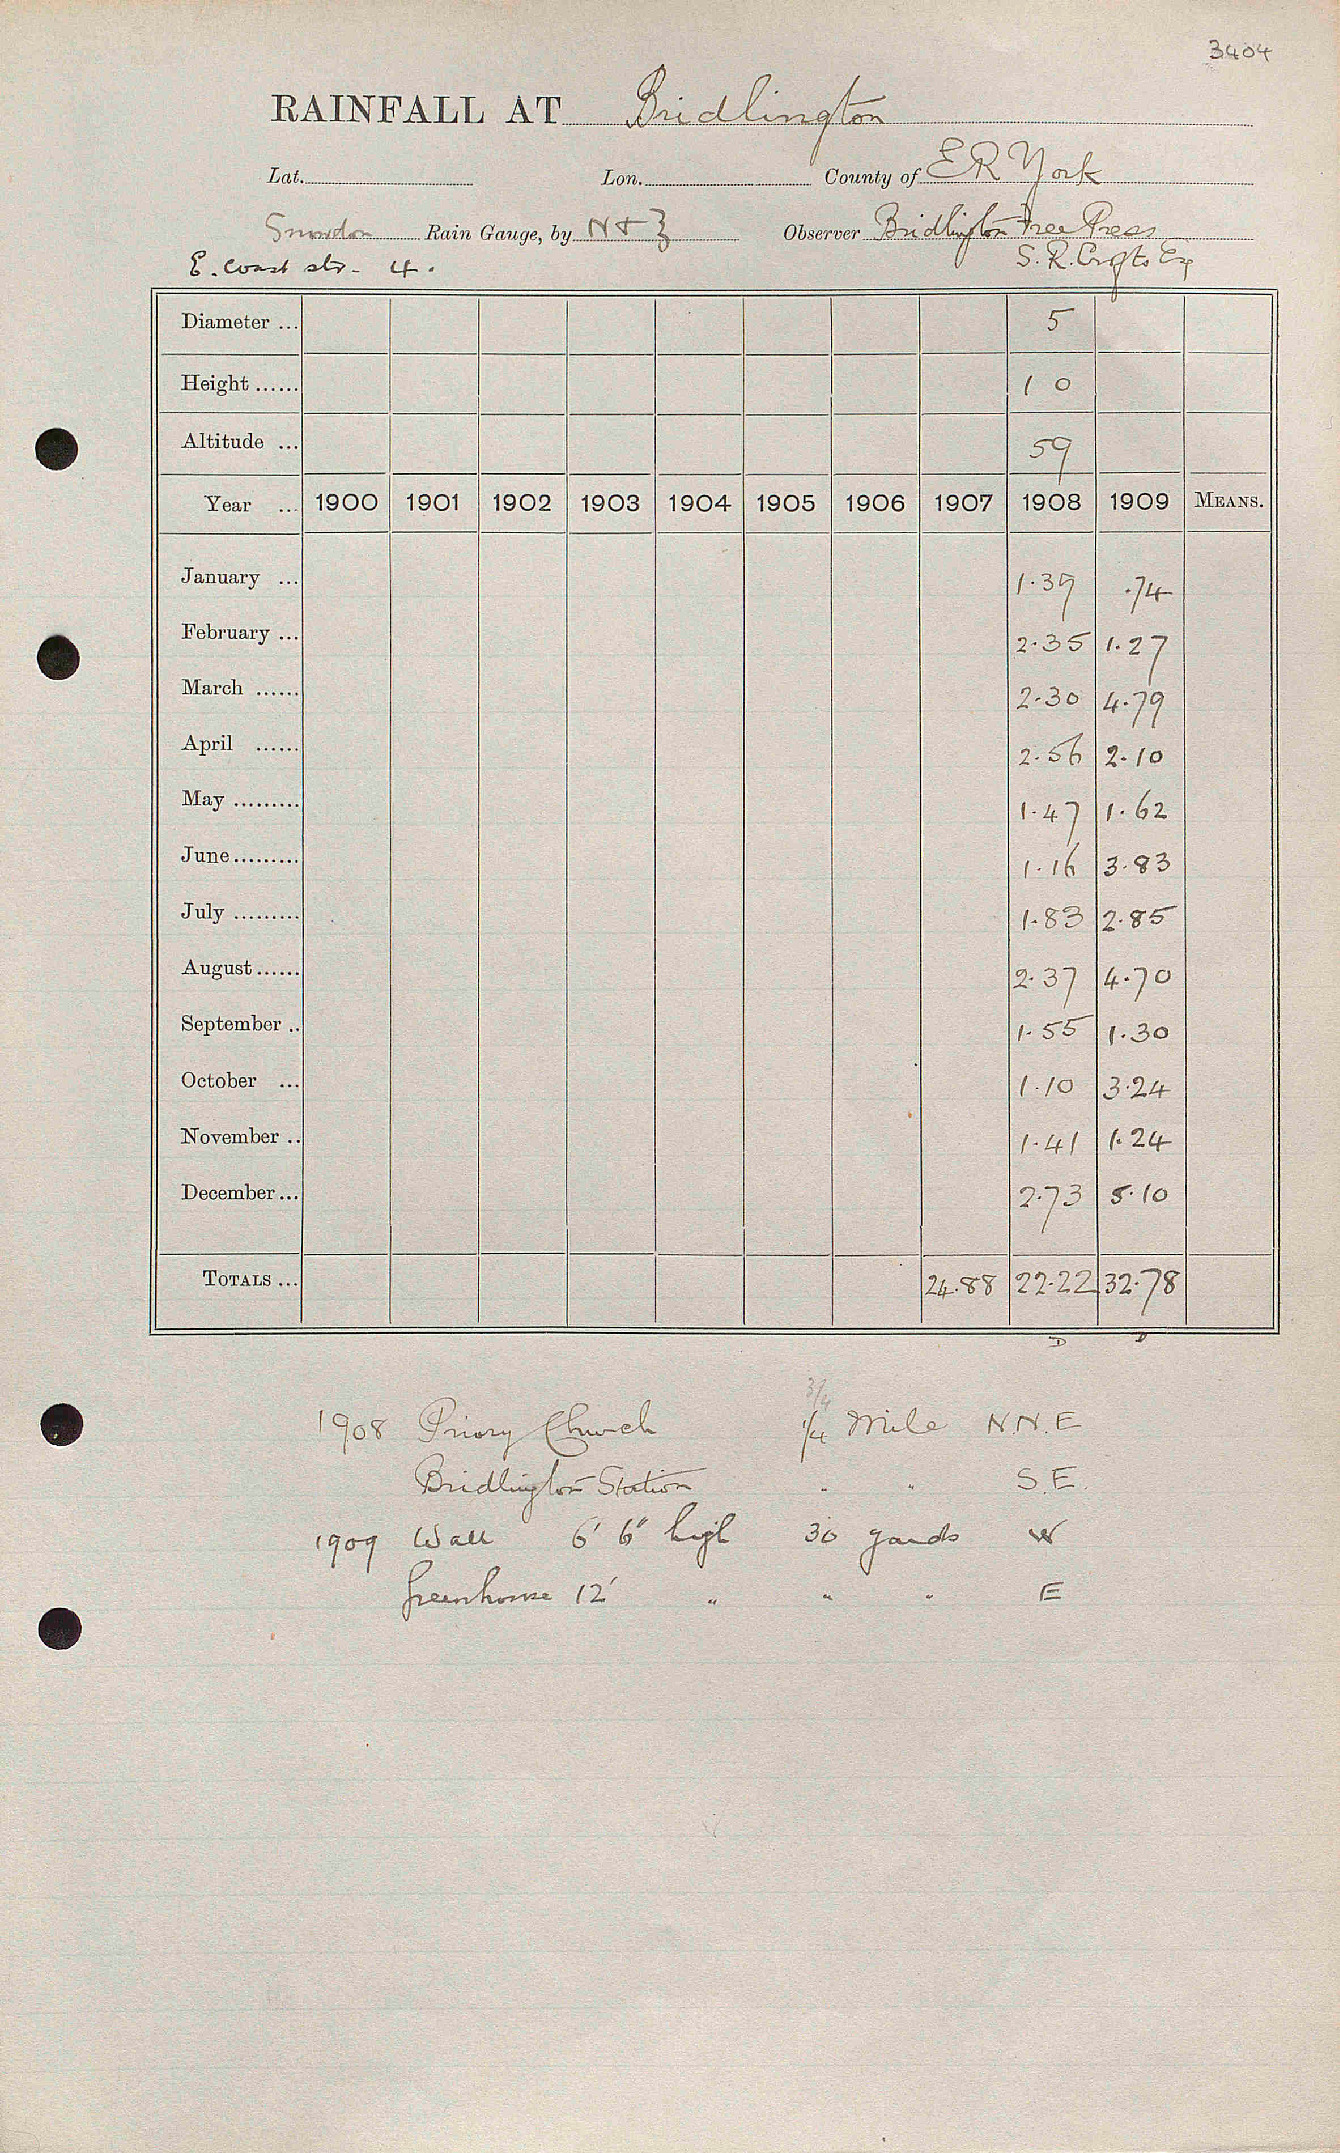 3404
RAINFALL AT Bridlington
Lat. Lon. County of E R York
Snowdon Rain Gauge, by N & Z Observer Bridlington Free Press
E. Coast str. 4. S. R. Esq
Diameter ... 5
Height ...... 1 0
Altitude ... 59
Year ... 1900 1901 1902 1903 1904 1905 1906 1907 1908 1909 MEANS.
January ... 1.39 .74
February ... 2.35 1.27
March ...... 2.30 4.79
April ...... 2.56 2.10
May ......... 1.47 1.62
June ......... 1.16 3.83
July ......... 1.83 2.85
August ...... 2.37 4.70
September .. 1.55 1.30
October ... 1.10 3.24
November .. 1.41 1.24
December ... 2.73 5.10
TOTALS ... 24.88 22.22 32.78
D D
3/4
1908 Priory Church 1/4 Mile N.N.E
Bridlington Station " " S.E.
1909 Wall 6' 6" high 30 yards W
Greenhouse 12' " " " E